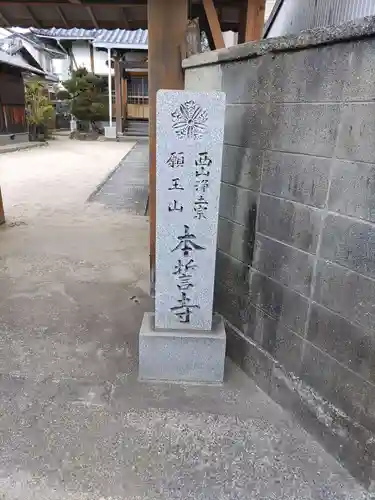 西山浄土宗
願王山
本誓寺